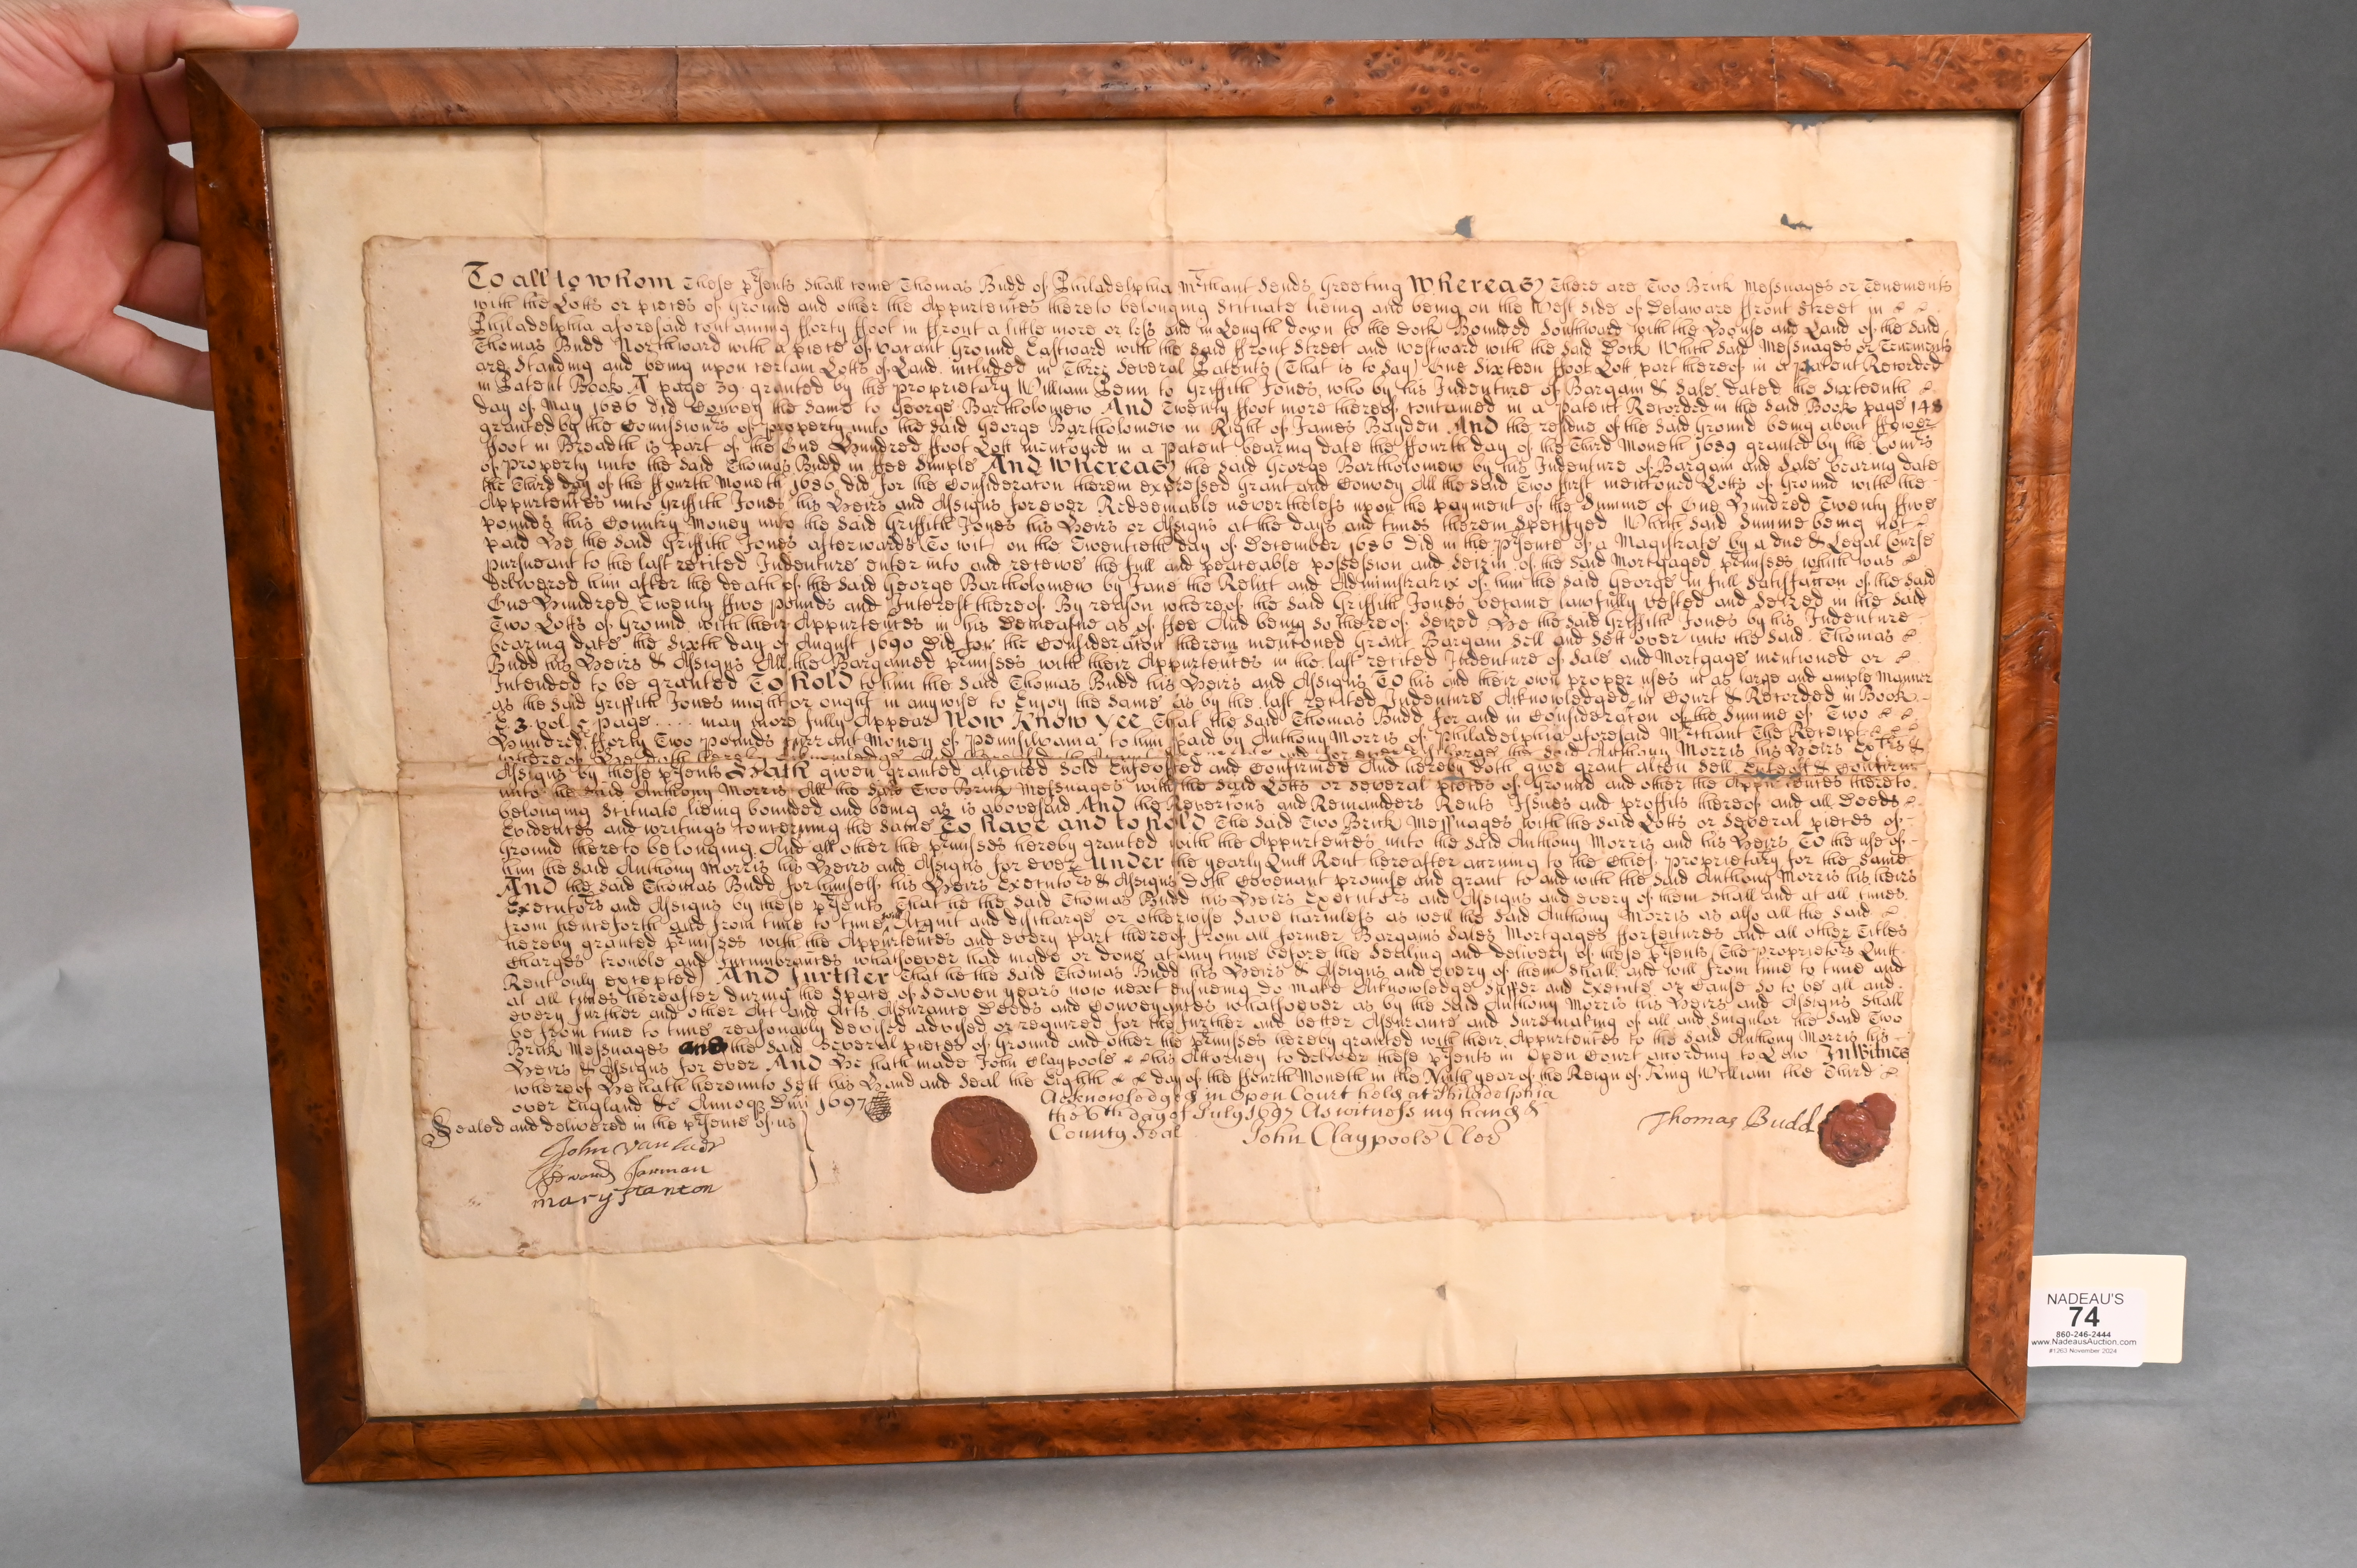 To all to whom These p'sents Shall come Thomas Budd of Philadelphia M'chant Sends Greeting Whereas There are Two Brick Messuages or Tenements
with the Lotts or pieces of Ground and other the Appurtences thereto belonging Scituate lieing and being on the West side of Delaware ffront Street in
Philadelphia aforesaid containing fforty ffoot in ffront a little more or less and in Length down to the Dock Bounded Southward with the House and Land of the said
Thomas Budd Northward with a piece of vacant Ground Eastward with the said ffront Street and westward with the said Dock Which said Messuages or Tenements
are Standing and being upon certain Lotts of Land included in Three Several Patents (That is to Say) One Sixteen ffoot Lott part thereof in a patent Recorded
in Patent Book A page 39 granted by the proprietary William Penn to Griffith Jones, who by his Indenture of Bargain & Sale dated the Sixteenth
day of May 1686 did Convey the Same to George Bartholomew And Twenty ffoot more thereof contained in a Patent Recorded in the said Book page 148
granted by the Comission'rs of property unto the said George Bartholomew in Right of James Boyden And the residue of the said Ground being about ffower
ffoot in Breadth is part of the One Hundred ffoot Lott mentioned in a Patent bearing date the ffourth day of the Third Moneth 1689 granted by the Com'rs
of property unto the said Thomas Budd in ffee Simple And Whereas the said George Bartholomew by his Indenture of Bargain and Sale bearing date
the Third day of the ffourth Moneth 1686 did for the Consideraton therein expressed Grant and Convey All the said Two first mentioned Lotts of Ground with the
Appurtences unto Griffith Jones his Heirs and Assigns forever Redeemable nevertheless upon the payment of the Summe of One Hundred Twenty ffive
pounds this Country Money unto the said Griffith Jones his Heirs or Assigns at the days and times therein Specifyed Which said Summe being not
paid He the said Griffith Jones afterwards (To wit) on the Twentieth day of December 1686 did in the p'sence of a Magistrate by a due & Legal Course
pursueant to the last recited Indenture enter into and receive the full and peaceable possession and Seizin of the said Mortgaged p'misses which was
delivered him after the death of the said George Bartholomew by Jane the Relict and Administratrix of him the said George in full Satisfaction of the said
One Hundred Twenty ffive pounds and Interest thereof By reason whereof the said Griffith Jones became lawfully vested and Seized in the said
Two Lotts of Ground with their Appurtences in his Demeasne as of ffee And being so thereof Seized He the said Griffith Jones by his Indenture
bearing date the Sixth day of August 1690 Did for the Consideraton therein mentioned Grant Bargain Sell and Sett over unto the said Thomas
Budd his Heirs & Assigns All the Bargained p'misses with their Appurtences in the last recited Indenture of Sale and Mortgage mentioned or
Intended to be granted To hold to him the said Thomas Budd his Heirs and Assigns To his and their own proper uses in as large and ample Manner
as the said Griffith Jones might or ought in anywise to Enjoy the Same as by the last recited Indenture Acknowledged in Court & Recorded in Book
E 3 vol 5 page .... may more fully Appear Now Know Yee That the said Thomas Budd for and in Consideraton of the Summe of Two
Hundred fforty Two pounds currant Money of Pennsilvania to him paid by Anthony Morris of Philadelphia aforesaid M'chant The Receipt
whereof He doth hereby Acknowledge and for ever discharge the said Anthony Morris his Heirs Ex'rs &
Assigns by these p'sents Hath given granted aliened Sold Enfeoffed and Confirmed And hereby doth give grant alien Sell Enfeoff & Confirm
unto the said Anthony Morris All the said Two Brick Messuages with the said Lotts or several pieces of Ground and other the Appurtences thereto
belonging Scituate lieing bounded and being as is abovesaid And the Revertions and Remainders Rents Issues and proffits thereof and all Deeds
Evidences and writings concerning the Same To have and to hold The said Two Brick Messuages with the said Lotts or Several pieces of
Ground thereto belonging And all other the p'misses hereby granted with the Appurtences unto the said Anthony Morris and his Heirs To the use of
him the said Anthony Morris his Heirs and Assigns for ever Under the yearly Quitt Rent hereafter accruing to the Chief proprietary for the Same
And the said Thomas Budd for himself his Heirs Executors & Assigns doth Covenant promise and grant to and with the said Anthony Morris his heirs
Executors and Assigns by these p'sents That he the said Thomas Budd his Heirs Executors and Assigns and every of them Shall and at all times
from henceforth and from time to time will Acquit and discharge or otherwise Save harmless as well the said Anthony Morris as also all the said
hereby granted p'misses with the Appurtences and every part thereof from all former Bargains Sales Mortgages fforfeitures and all other Titles
Charges trouble and Incumbrances whatsoever had made or done at any time before the Sealing and delivery of these p'sents (The proprietors Quitt
Rent only excepted) And further That he the said Thomas Budd his Heirs & Assigns and every of them Shall and will from time to time and
at all times hereafter during the Space of Seaven years now next ensueing do make Acknowledge Suffer and Execute or Cause so to be all and
every further and other Act and Acts Assurance Deeds and Conveyances whatsoever as by the said Anthony Morris his Heirs and Assigns Shall
be from time to time reasonably devised advised or required for the further and better Assurance and Suremaking of all and Singular the said Two
Brick Messuages and the said Several pieces of Ground and other the p'misses hereby granted with their Appurtences to the said Anthony Morris his
Heirs & Assigns for ever And He hath made John Claypoole his Attorney to deliver these p'sents in Open Court according to Law In Witnes
whereof He hath hereunto Sett his Hand and Seal the Eighth day of the ffourth Moneth in the Ninth year of the Reign of King William the Third
over England &c Annoq Dni 1697
Acknowledged in Open Court held at Philadelphia
the 6th day of July 1697 As witness my hand &
County Seal John Claypoole Cler
Thomas Budd
Sealed and delivered in the p'sence of us
John Vanlaer
Edward Jarman
mary Stanton
NADEAU'S
74
860-246-2444
www.NadeausAuction.com
#1263 November 2024